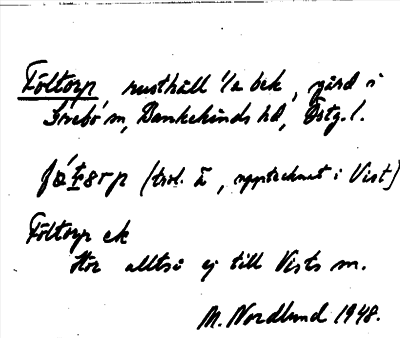 Föltorp rusthåll 1/2 bek, gård i
Grebo sn, Bankekinds hd, Östg. l.
(trol. ɪ, upptecknat i Vist)
Föltorp ek
Hör alltså ej till Vists sn.
M. Nordlund 1948.